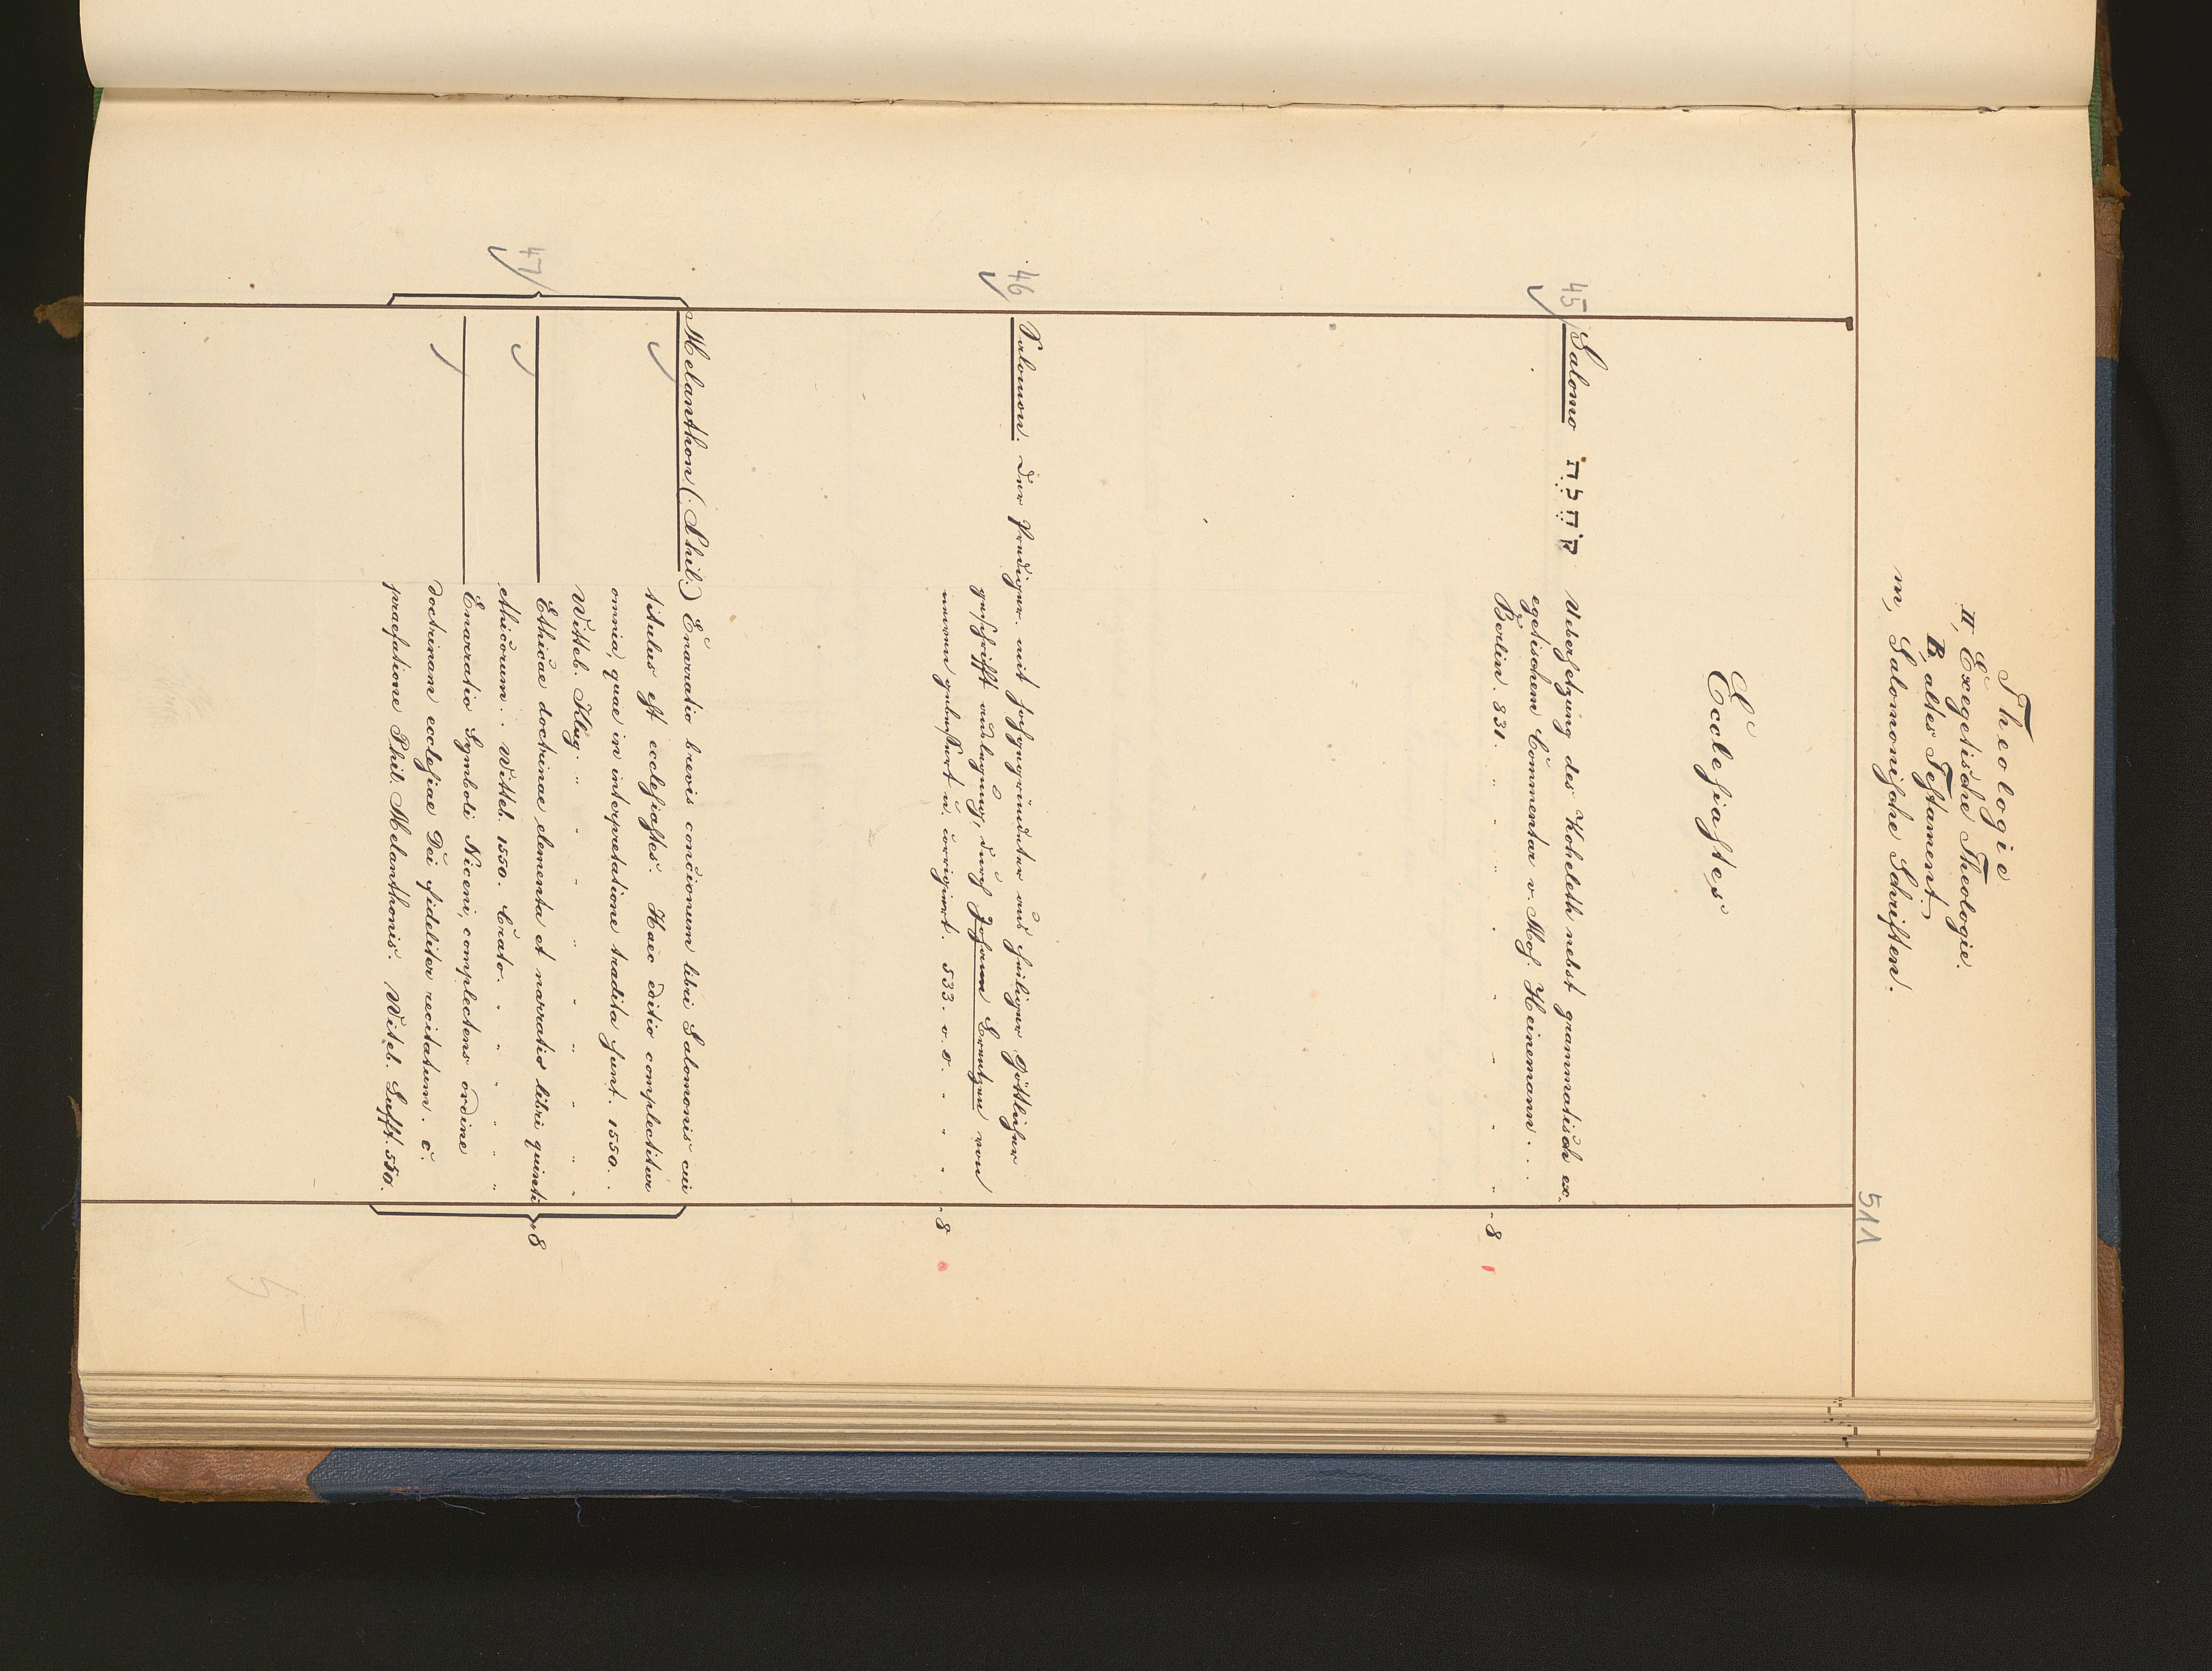 Theologie
II, Exegetische Theologie.
B, altes Testament,
m, Salomonische Schriften.
511
Ecclesiastes
45 Salomo קֹהֶלֶת Uebersetzung des Koheleth nebst grammatisch ex-
egetischem Commentar v. Mos. Heinemann . .
Berlin. 831. " - " - - - " - 8
46 Salomon. Der Prediger. mit hochgegründeter aus heiliger Göttlicher
geschrifft auslegung, durch Johann Brentzen von
newen gebessert u. corrigiert. 533. o. O. - - - - 8
47 Melanthon (Phil.) Enarratio brevis concionum libri Salomonis cui
titulus est ecclesiastes. Haec editio complectitur
omnia, quae in interpretatione tradita sunt. 1550. .
Witteb. Klug. " - - " - " - " -
Ethicae doctrinae elementa et narratio libri quinti
ethicorum . . Witteb. 1550. Crato. - - - - - " - 8
Enarratio Symboli Niceni, complectens ordine
doctrinam ecclesiae Dei fideliter recitatam. c.
praefatione Phil. Melanthonis. Viteb. Lufft. 550.